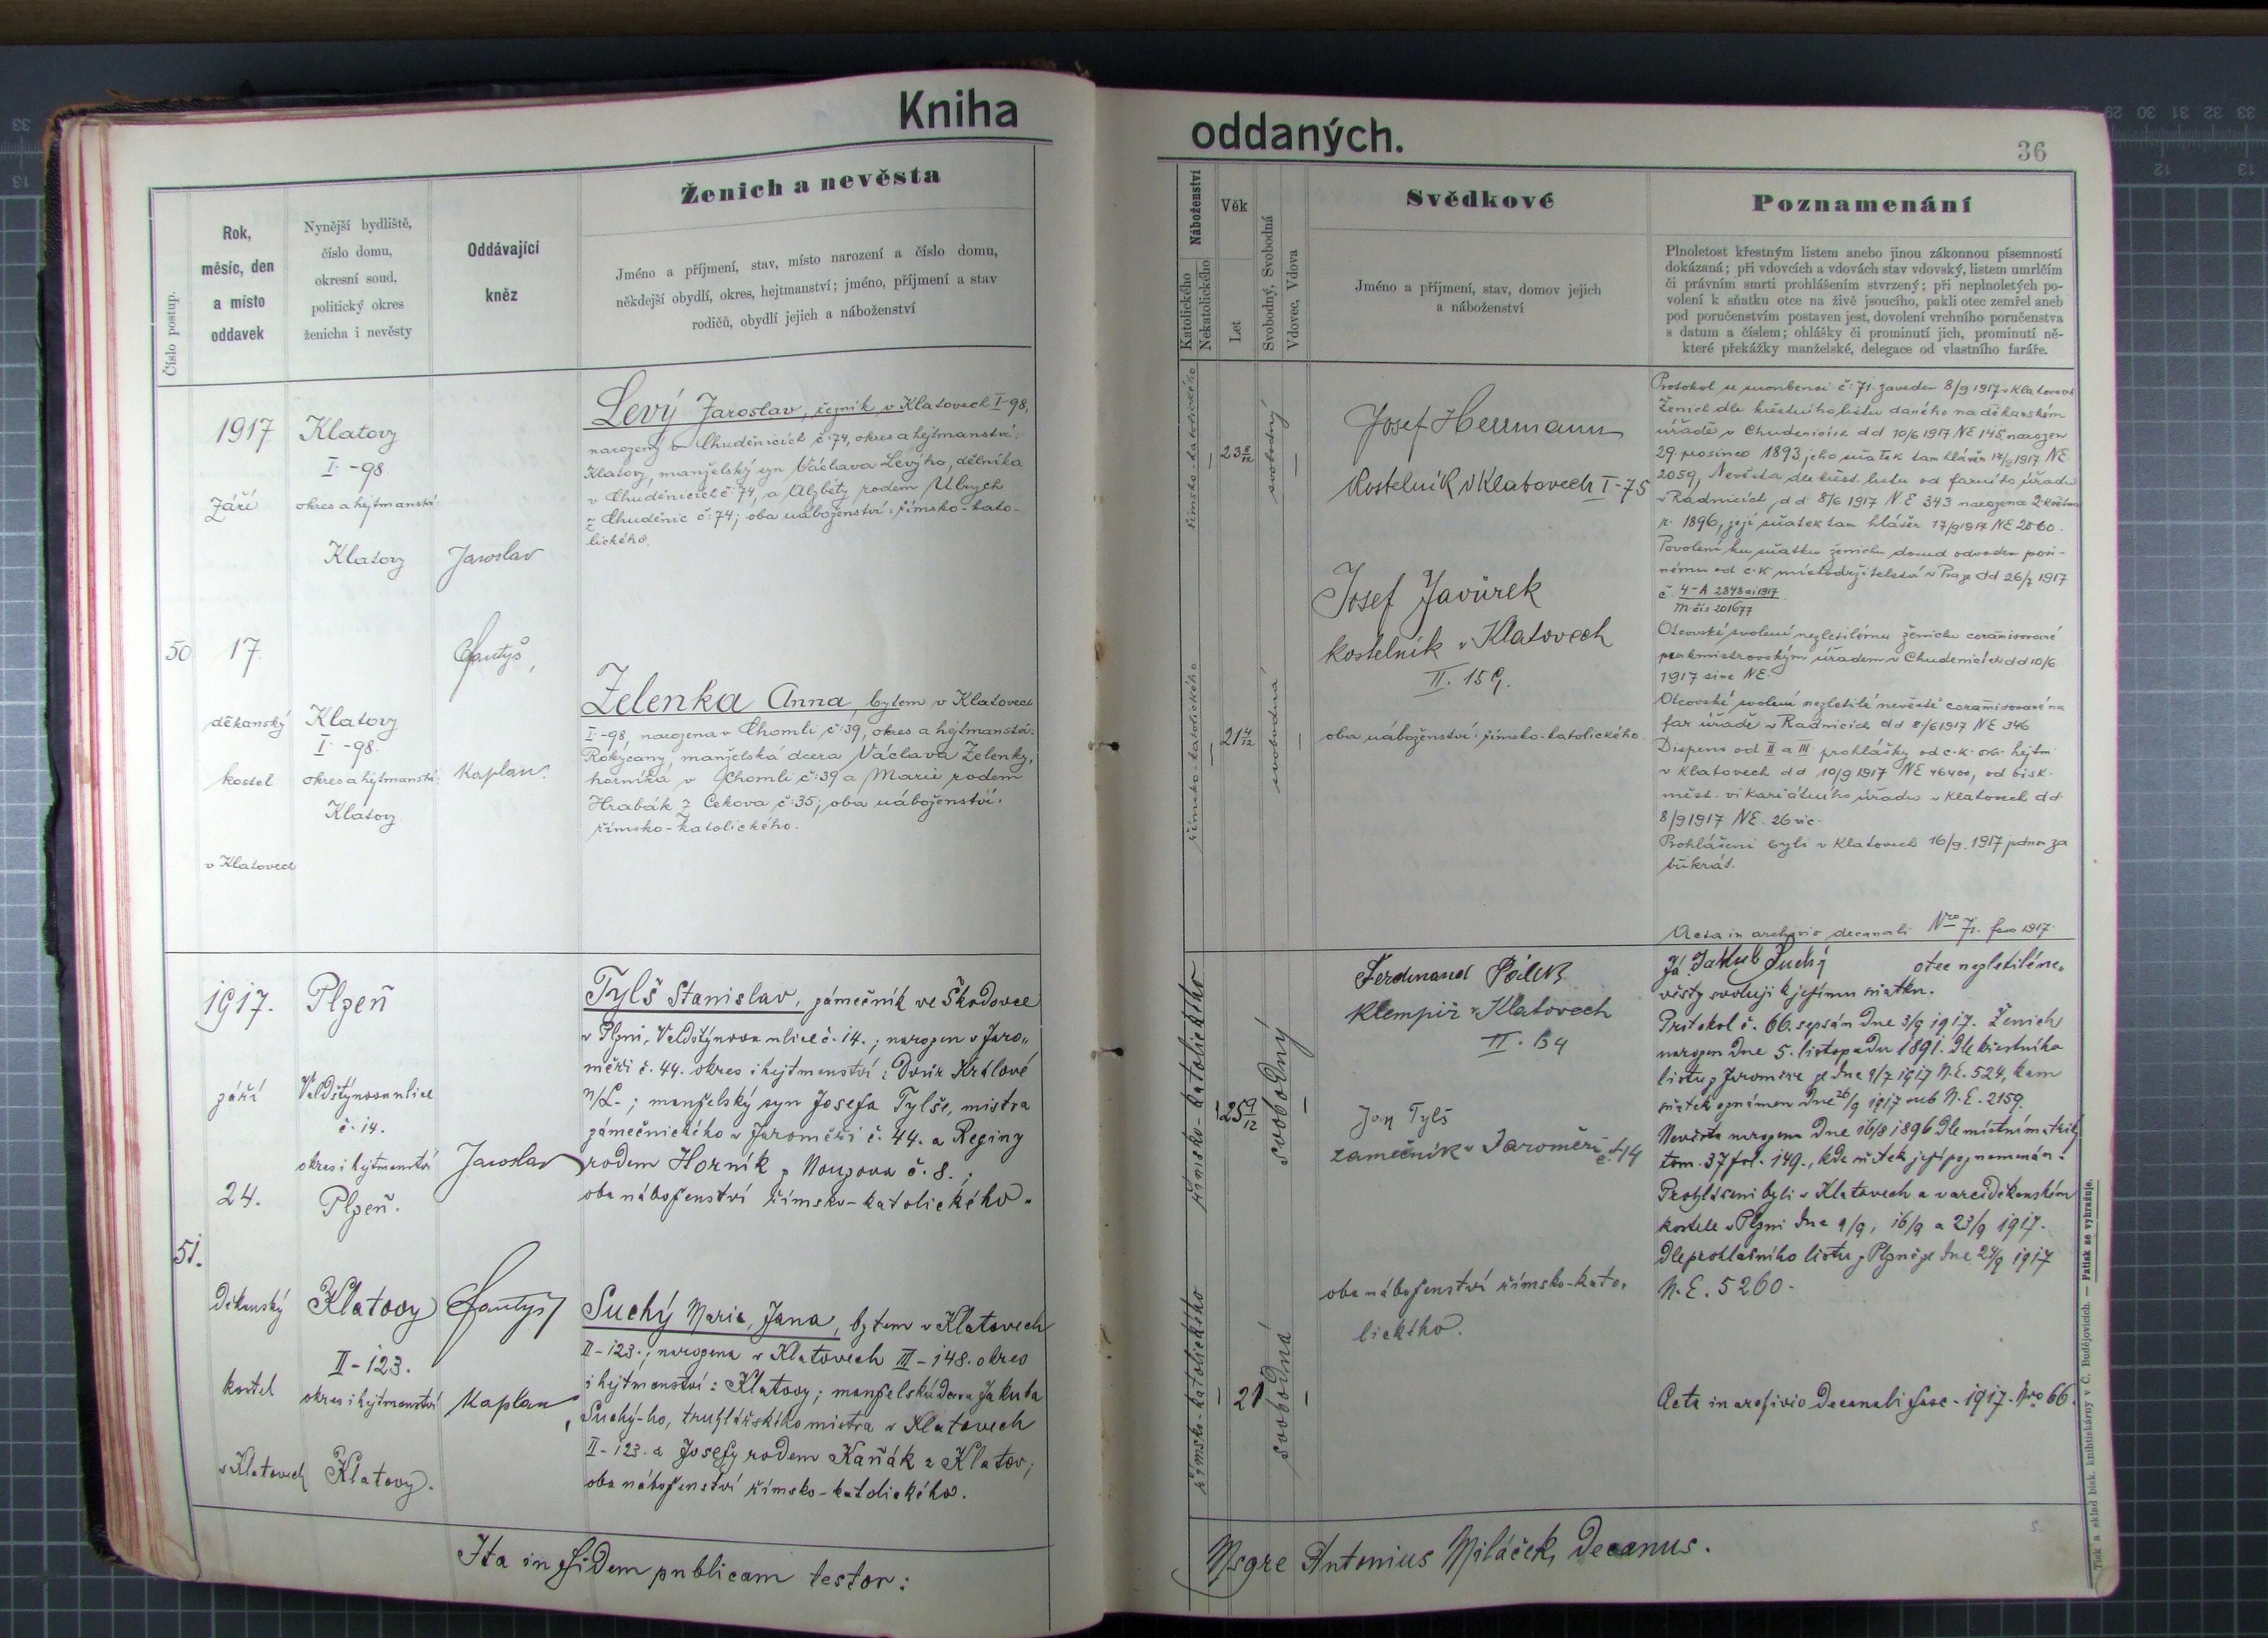 Kniha
oddaných.
36
Číslo postup.
Rok,
měsíc, den
a místo
oddavek
Nynější bydliště,
číslo domu,
okresní soud,
politický okres
ženicha i nevěsty
Oddávající
kněz
Ženich a nevěsta
Jméno a příjmení, stav, místo narození a číslo domu,
někdejší obydlí, okres, hejtmanství; jméno, příjmení a stav
rodičů, obydlí jejich a náboženství
Náboženství
Katolického
Nekatolického
Věk
Let
Svobodný, Svobodná
Vdovec, Vdova
Svědkové
Jméno a příjmení, stav, domov jejich
a náboženství
Poznamenání
Plnoletost křestným listem anebo jinou zákonnou písemností
dokázaná; při vdovcích a vdovách stav vdovský, listem umrlčím
či právním smrti prohlášením stvrzený; při neplnoletých po-
volení k sňatku otce na živě jsoucího, pakli otec zemřel aneb
pod poručenstvím postaven jest, dovolení vrchního poručenstva
s datum a číslem; ohlášky či prominutí jich, prominutí ně-
které překážky manželské, delegace od vlastního faráře.
50
1917
Září
17.
děkanský
kostel
v Klatovech
Klatovy
I. - 98.
okres a hejtmanství:
Klatovy
Klatovy
I. - 98.
okres a hejtmanství:
Klatovy.
Jaroslav
kaplan.
Levý Jaroslav, řezník v Klatovech I-98,
narozený v Chuděnicích č. 74, okres a hejtmanství:
Klatovy, manželský syn Václava Levýho, dělníka
v Chuděnicích č. 74, a Alžběty rodem Ulrych
z Chuděnic č. 74; oba náboženství: římsko-kato-
lického.
Zelenka Anna, bytem v Klatovech
I-98 narozena v Chomli č. 39, okres a hejtmanství:
Rokycany, manželská dcera Václava Zelenky,
horníka v Chomli č. 39 a Marie rodem
Hrabák z Cekova č. 35; oba náboženství:
římsko-katolického.
římsko-katolického
23 8/12
svobodný
římsko-katolického
21 4/12
svobodná
Josef Herrmann
Kostelník v Klatovech I-75
Josef Javůrek
kostelník v Klatovech
II. 159.
oba náboženství: římsko-katolického.
Protokol se snoubenci č. 71. zaveden 8/9 1917 v Klatovech
Ženich dle křestního listu daného na děkanském
úřadě v Chudenicích dd 10/6 1917 NE 145, narozen
29. prosince 1893, jeho sňatek tam hlášen 17/9 1917 NE
2059, Nevěsta dle křest. listu od farního úřadu
v Radnicích, dd 8/6 1917 NE 343 narozena 2. května
r. 1896, její sňatek tam hlášen 17/9 1917 NE 2060.
Povolení ku sňatku ženichu dosud odvoden povi-
nému od c. k. místodržitelství v Praze dd 26/7 1917
č. 4-A 2848 ai 1917
m. čís 201677
Otcovské svolení nezletilému ženichu coramisované
purkmistrovským úřadem v Chudenicích dd 10/6
1917 sine NE.
Otcovské svolení nezletilé nevěstě coramisované na
far. úřadě v Radnicích dd 8/6 1917 NE 346
Dispens od II a III. prohlášky od c. k. okr. hejtm.
v Klatovech dd 10/9 1917 NE 46400, od bisk.
měst. vikariátního úřadu v Klatovech dd
8/9 1917 NE. 26 vic.
Prohlášeni byli v Klatovech 16/9. 1917 jednou za
třikrát.
Acta in archivio decanali Nro 71. fasc 1917.
51.
1917.
září
24.
Děkanský
kostel
v Klatovech
Plzeň
Valdštýnova ulice
č. 14.
okres i hejtmanství
Plzeň.
Klatovy
II-123.
okres i hejtmanství
Klatovy.
Jaroslav
Kaplan
Tylš Stanislav, zámečník ve Škodovce
v Plzni, Valdštýnova ulice č. 14.; narozen v Jaro„
měři č. 44. okres i hejtmanství: Dvůr Králové
n/L.; manželský syn Josefa Tylše, mistra
zámečnického v Jaroměři č. 44. a Reginy
rodem Horník z Nouzova č. 8.;
oba náboženství římsko-katolického.
Suchý Marie, Jana, bytem v Klatovech
II-123.; narozena v Klatovech III-148. okres
i hejtmanství: Klatovy; manželská dcera Jakuba
Suchý-ho, truhlářského mistra v Klatovech
II-123. a Josefy rodem Kaňák z Klatov;
oba náboženství římsko-katolického.
římsko-katolického
25 9/12
svobodný
římsko-katolického
21
svobodná
Ferdinand
Klempíř v Klatovech
Jan Tylš
zamečník v Jaroměři č. 44
oba náboženství římsko-kato„
lického.
Já Jakub Suchý otec nezletilé ne„
věsty svoluji k jejímu sňatku.
Protokol č. 66. sepsán dne 3/9 1917. Ženich
narozen dne 5. listopadu 1891. dle křestního
listu z Jaroměře je dne 9/7 1917 N.E. 524, kam
sňatek oznámen dne 26/9 1917 sub N.E. 2159.
Nevěsta narozena dne 16/8 1896 dle místní matriky
tom. 37 fol. 149., kde sňatek její poznamenán.
Prohlášeni byli v Klatovech a v arciděkanském
kostele v Plzni dne 9/9, 16/9 a 23/9 1917.
Dle prohlašního listu z Plzně je dne 24/9 1917
N.E. 5260.
Acta in archivio decanali fasc. 1917. Nro 66.
Ita in fidem publicam testor:
Msgre Antonius Miláček, decanus.
Tisk a sklad bisk. knihtiskárny v Č. Budějovicích. — Patisk se vyhražuje.